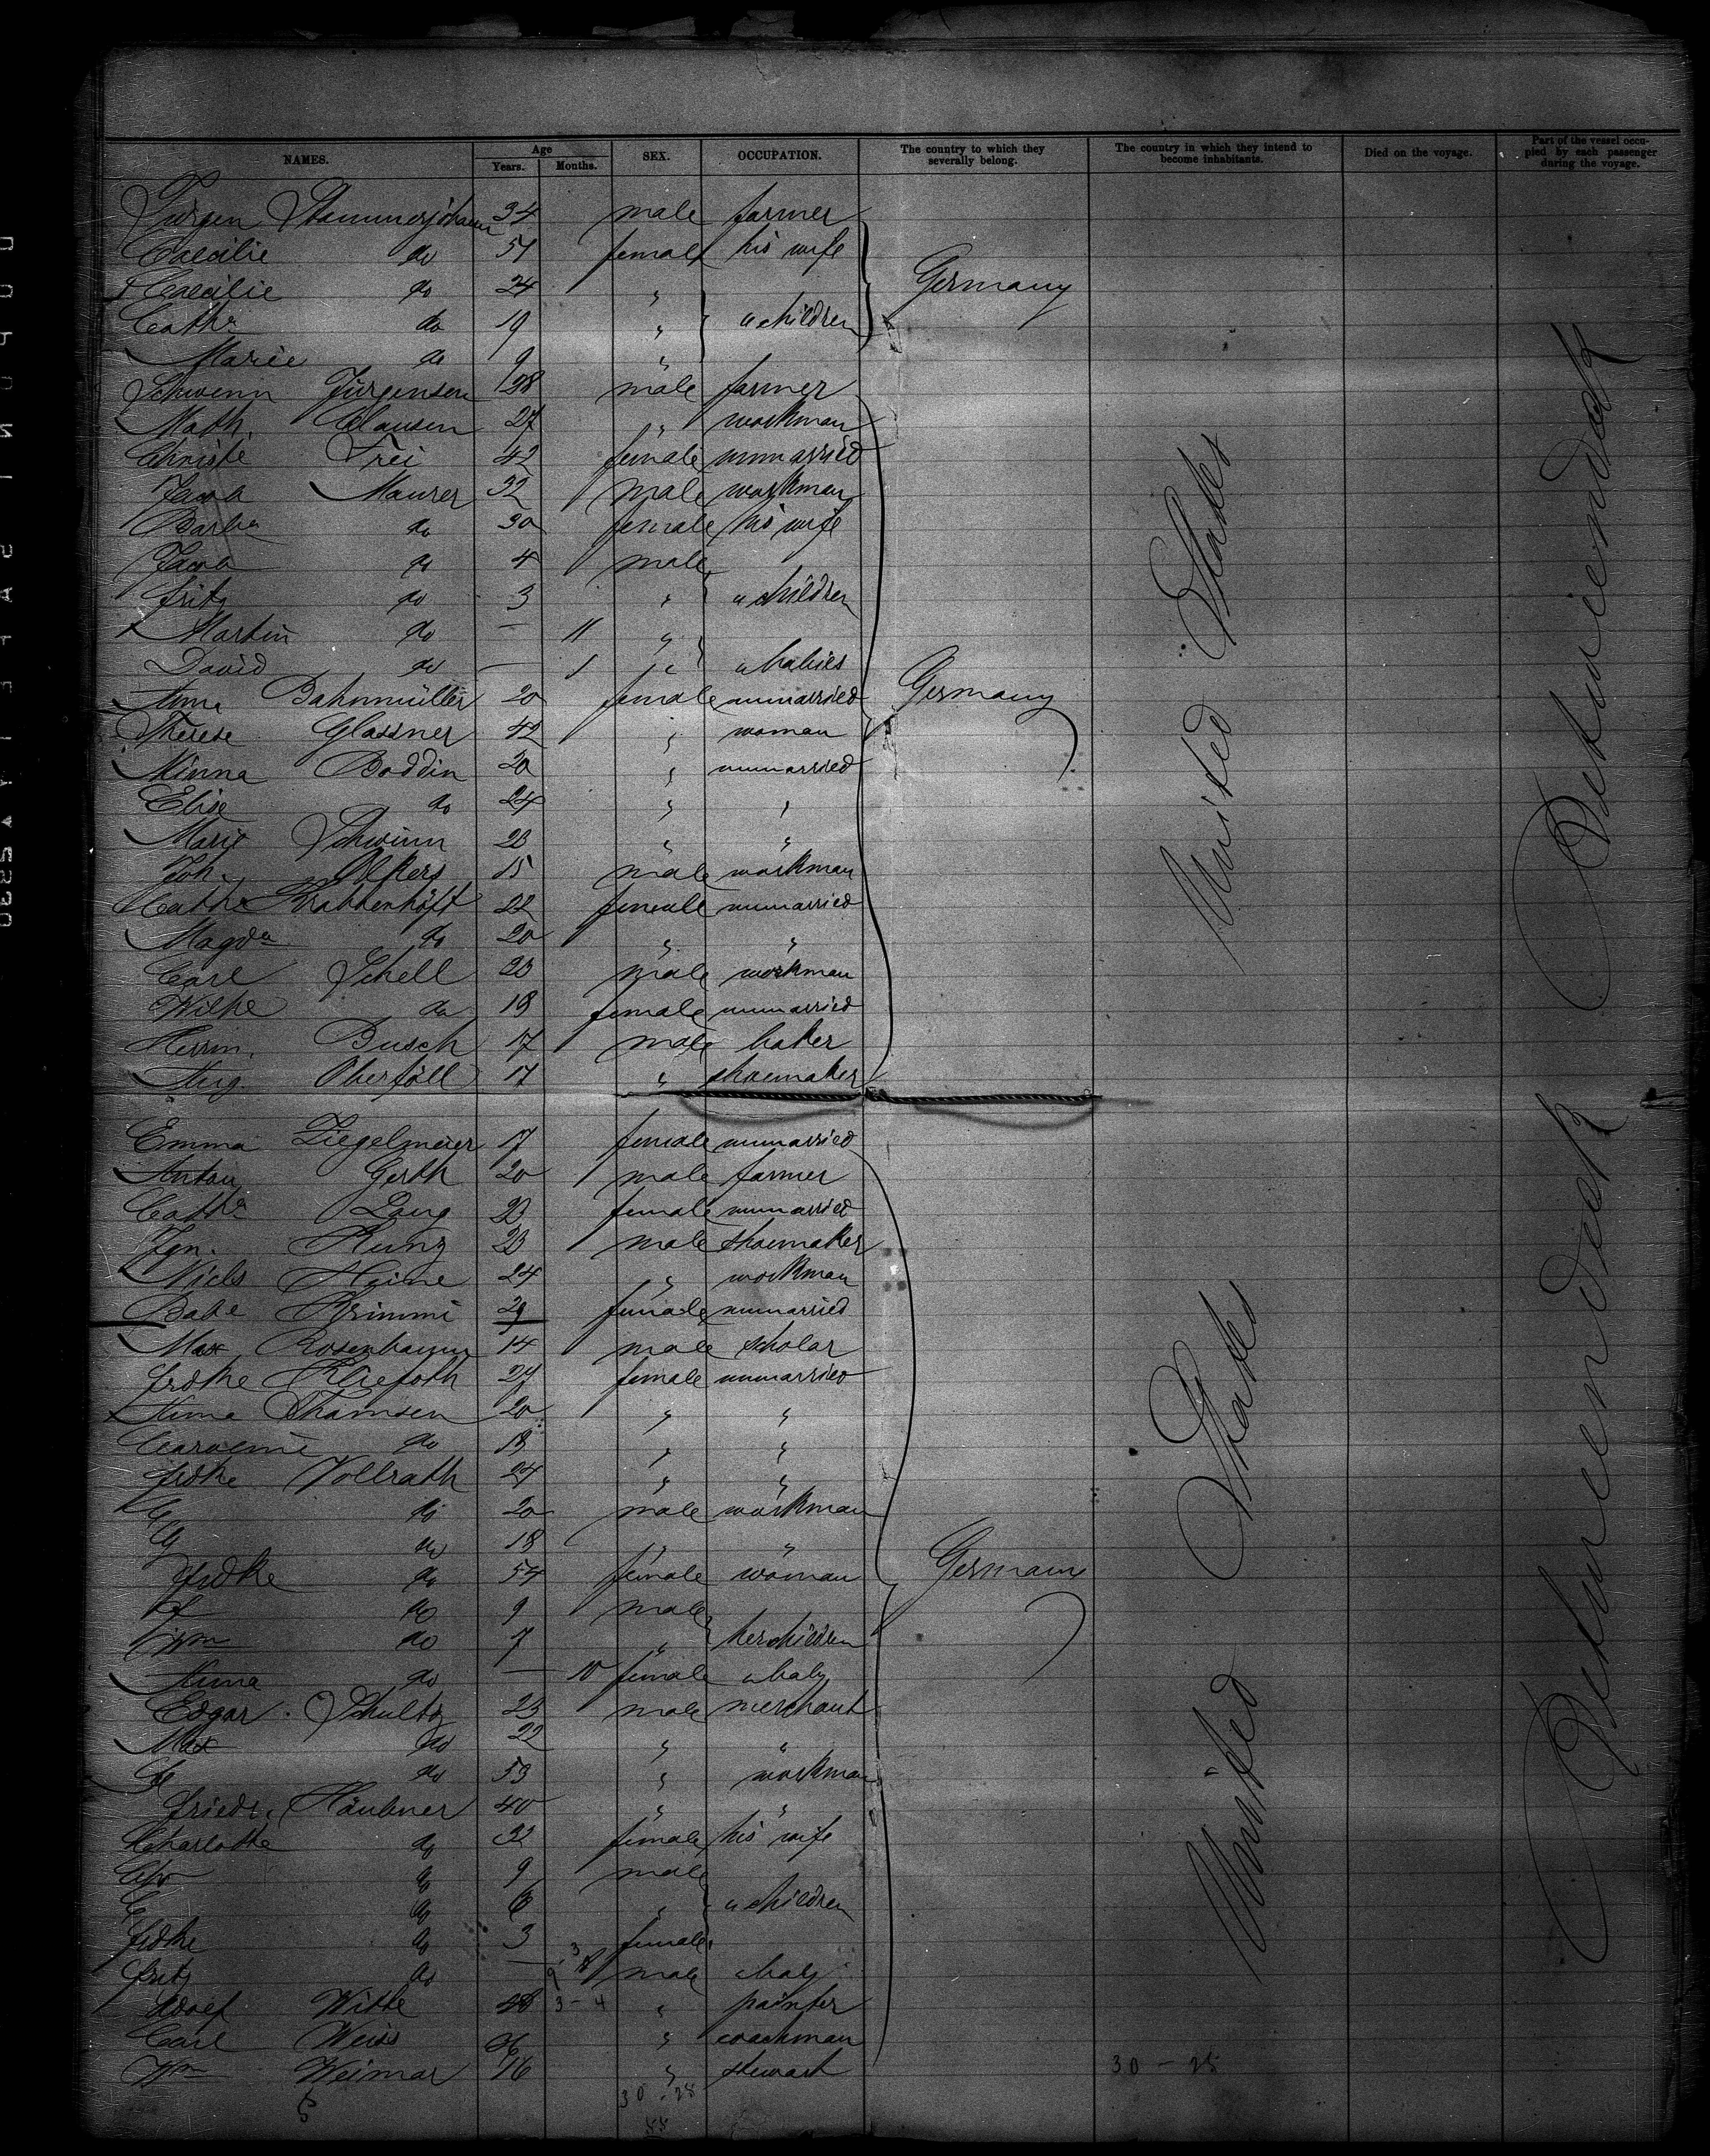 NAMES. Age Years. Months. SEX. OCCUPATION. The country to which they severally belong. The country in which they intend to become inhabitants. Died on the voyage. Part of the vessel occupied by each passenger during the voyage.
Jürgen Stammerjohann 34 male farmer
Caecilie do 51 female his wife
Caecilie do 24 " Germany
Cath. do 19 " " children
Marie do 9 "
Schwenn Jürgensen 28 male farmer
Math. Clausen 27 " workman
Christe Frei 42 female unmarried
Jacob Maurer 32 male workman
Barba do 30 female his wife
Jacob do 4 male
Fritz do 3 " " children
Martin do — 11 "
David do — 1 " " babies
Anna Bahnmüller 20 female unmarried Germany
Therese Glassner 42 " woman
Minna Boddin 20 " unmarried
Elise do 24 " "
Marie Schwinn 23 " "
Joh. Olkers 15 male workman
Cath. Krabbenhöft 22 female unmarried
Magda do 20 " "
Carl Schell 23 male workman
Wilhe do 18 female unmarried
Herm. Busch 17 male baker
Aug. Oberföll 17 " shoemaker
Emma Ziegelmeier 17 female unmarried
Anton Gerth 20 male farmer
Cath. Lang 23 female unmarried
Ign. Kunz 23 male shoemaker
Niels Heine 24 " workman
Babe Krimmi 29 female unmarried
Max Rosenbaum 14 male scholar
Frdke Kliefoth 29 female unmarried
Anna Thamsen 20 " "
Caroline do 18 " "
Frdke Vollrath 24 " "
do 20 male workman
do 18 " "
Frdke do 54 female woman Germany
do 9 male
Wm do 7 " her children
Anna do — 10 female " baby
Edgar Schultz 23 male merchant
Max do 22 " "
do 53 " workman
Friedr. Häubner 40 " "
Charlotte do 32 female his wife
do 9 male
do 6 " " children
Frdke do 3 female
Fritz do — male " baby
Adolf Witte 48 3 - 4 " painter
Carl Weiss 36 " coachman
Wm Weimar 16 " steward
30 - 28
30 - 28
United States
United States
Betweendeck
Betweendeck